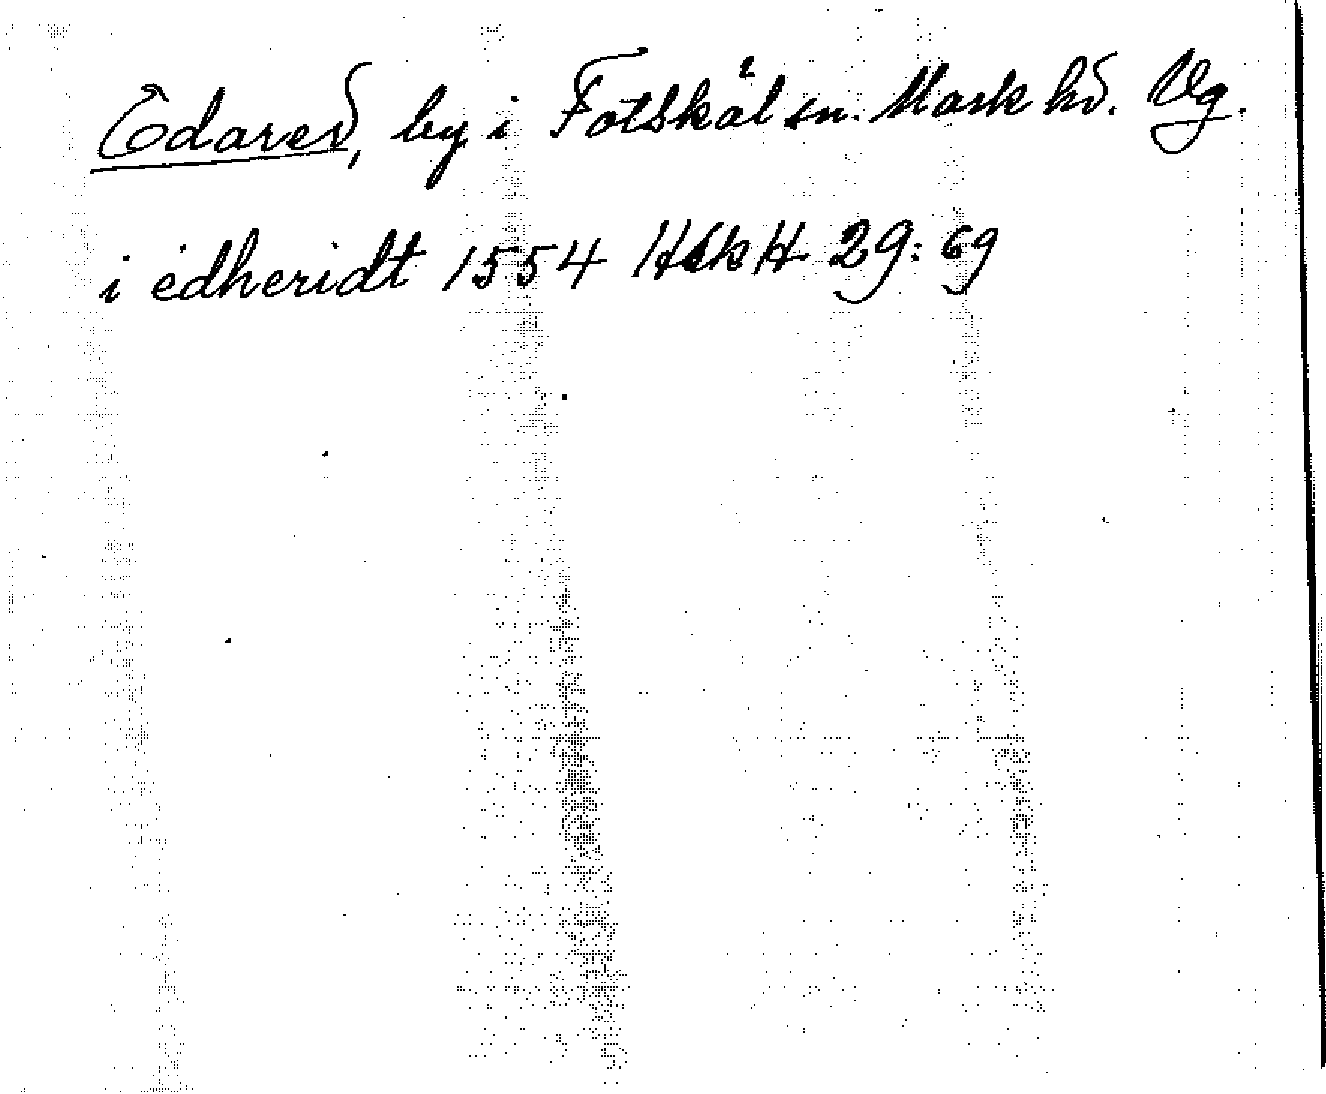 Edared, by i Fotskäl sn. Mark hd. Vg.
i edheridt 1554 HskH 29: 69